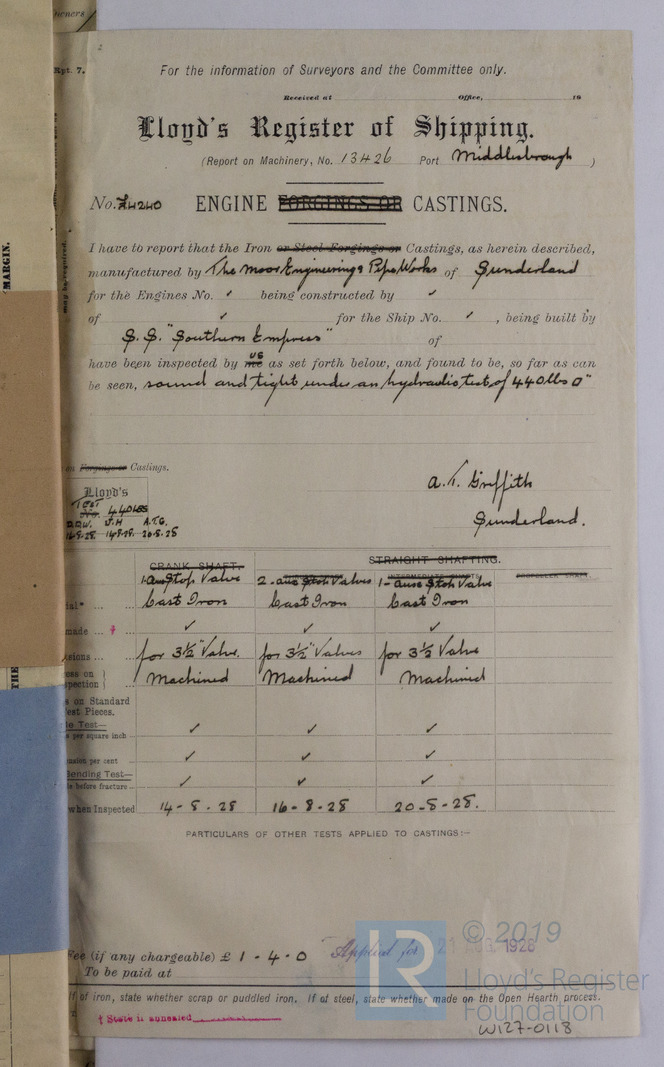 Rpt. 7.
2
For the information of Surveyors and the Committee only.
Received at Office, 19
Lloyd's Register of Shipping.
(Report on Machinery, No. 13426 Port Middlesbrough )
No. 24240 ENGINE FORGINGS OR CASTINGS.
I have to report that the Iron or Steel Forgings or Castings, as herein described,
manufactured by The Moor Engineering & Pipe Works of Sunderland
for the Engines No. ✓ being constructed by ✓
of ✓ for the Ship No. ✓, being built by
S.S. "Southern Empress" of
have been inspected by me us as set forth below, and found to be, so far as can
be seen, sound and tight under an hydraulic test of 440 lbs □"
MARGIN.
may be required.
on Forgings or Castings.
Lloyd's
TEST
440 LBS
J.H A.T.G.
14-8-28. 20-8-28
A. T. Griffith
Sunderland.
CRANK SHAFT. STRAIGHT SHAFTING.
1-aux Stop Valve 2-aux Stop Valves 1-aux Stop Valve
PROPELLER SHAFT.
ial* ... Cast Iron Cast Iron Cast Iron
made ... † ✓ ✓ ✓
sions ... for 3½" Valve. for 3½" Valves for 3½ Valve
ess on
spection Machined Machined Machined
s on Standard
est Pieces.
le Test— ✓ ✓ ✓
s per square inch
nsion per cent ✓ ✓ ✓
Bending Test—
le before fracture ✓ ✓ ✓
when Inspected 14-8-28 16-8-28 20-8-28.
THE
PARTICULARS OF OTHER TESTS APPLIED TO CASTINGS:—
Fee (if any chargeable) £ 1-4-0 Applied for 21 AUG 1928
To be paid at
If of iron, state whether scrap or puddled iron. If of steel, state whether made on the Open Hearth process.
† State if annealed
LR
© 2019
Lloyd's Register
Foundation
W127-0118